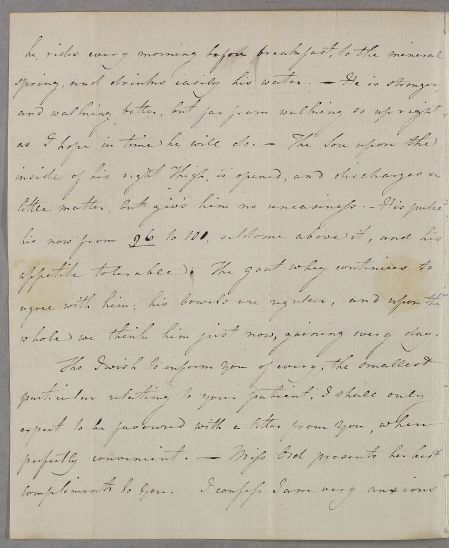 he, rides every morning before breakfast, to the mineral
spring, and drinks easily his water. — He is stronger
and walking better, but far from walking so upright
as I hope in time he will do. — The Sore upon the
inside of his right Thigh, is opened, and discharges a
little matter, but gives him no uneasiness. — His pulse
is now from 96 to 100, seldome above it, and his
appetite tolerable. The goat whey continues to
agree with him, his bowels are regular, and upon the
whole we think him just now, gaining every day.
Tho I wish to inform you of every, the smallest
particular relating to your patient, I shall only
expect to be favoured with a letter from you, when
perfectly convenient. — Miss Ord presents her best
compliments to you. I confess I am very anxious